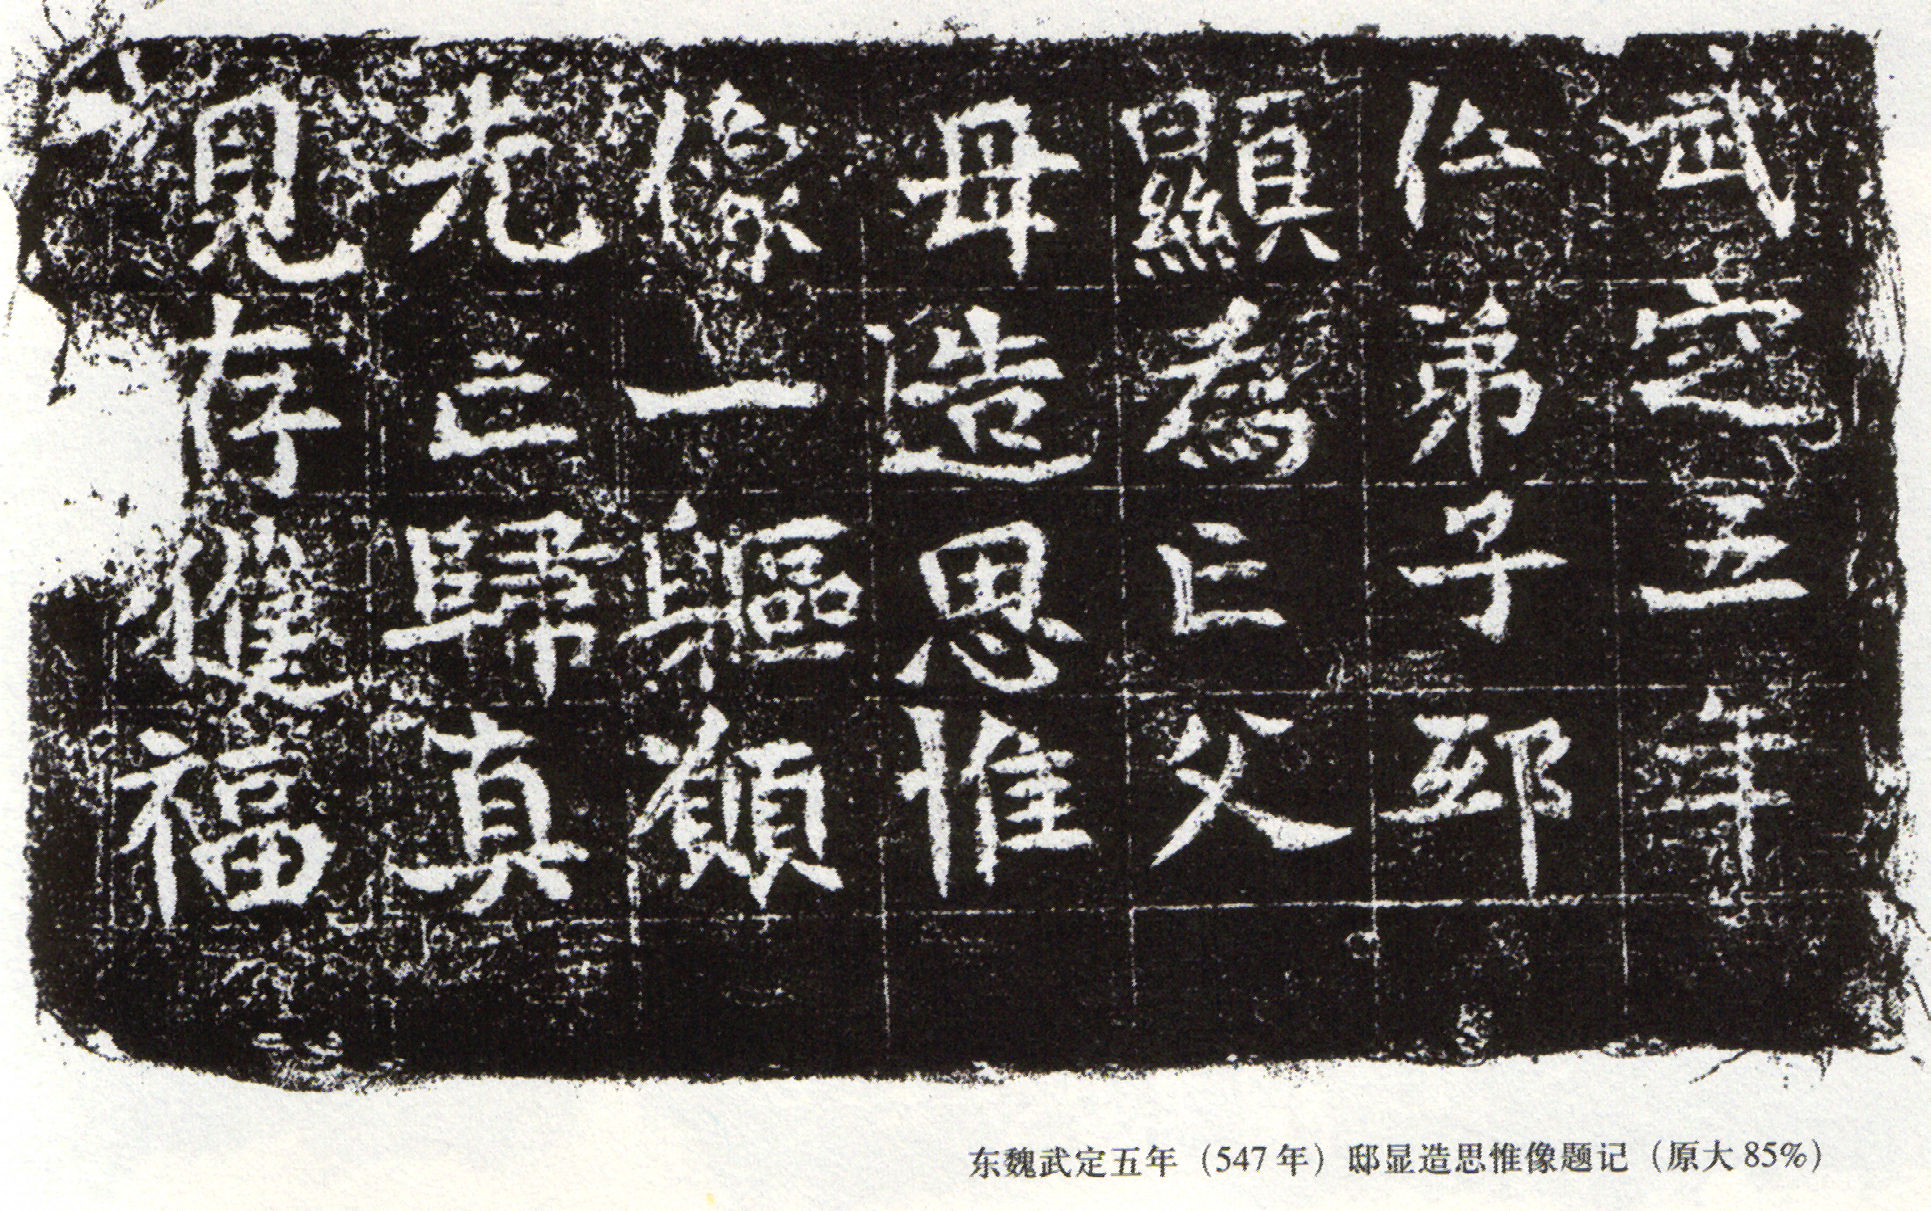 武定五年
仏弟子邸
顯為亡父
母造思惟
像一軀願
先亡歸真
見存獲福
东魏武定五年（547年）邸显造思惟像题记（原大85%）